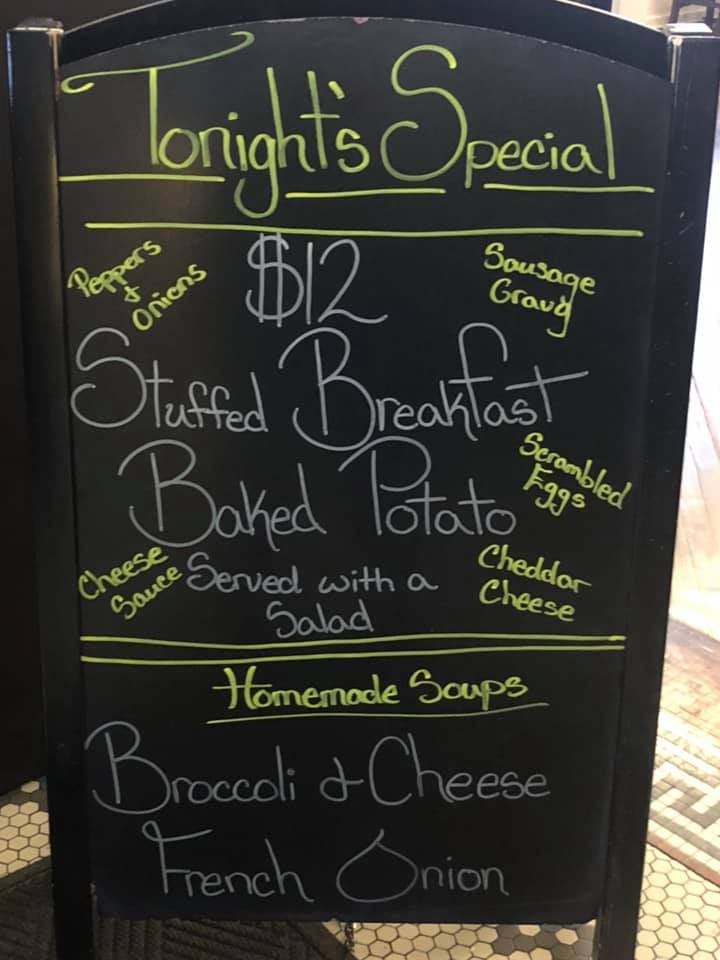 Tonight's Special
Peppers
&
Onions
$12
Sausage
Gravy
Stuffed Breakfast
Baked Potato
Scrambled
Eggs
Cheese
Sauce
Served with a
Salad
Cheddar
Cheese
Homemade Soups
Broccoli & Cheese
French Onion